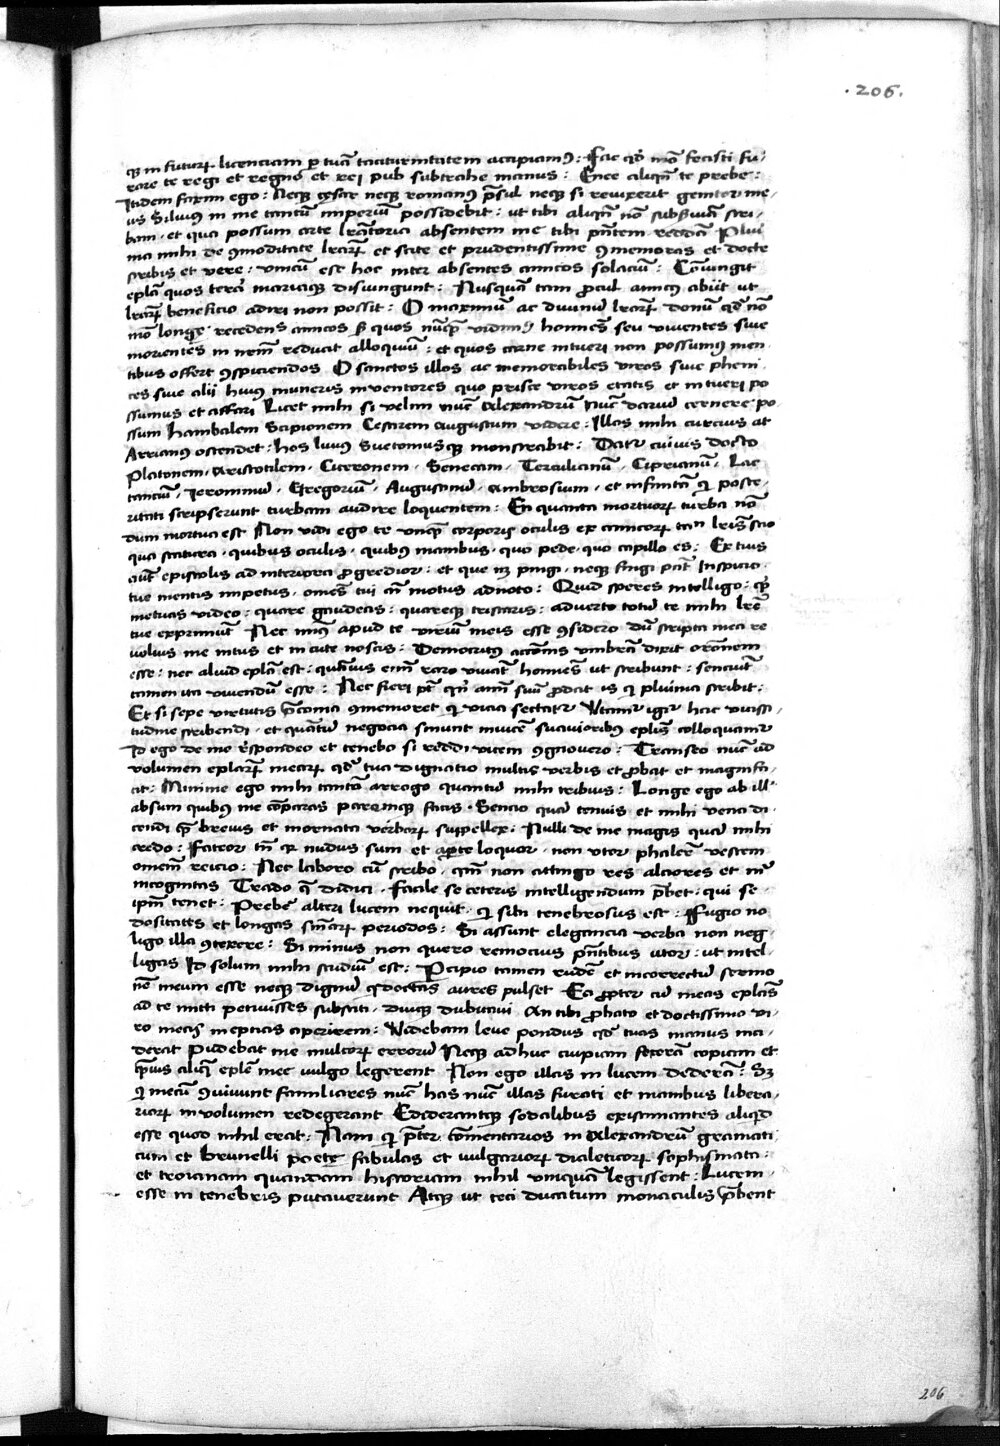 .206.
q3 in futurū licenciam p tuā taciturnitatem accipiamꝰ : Fac qđ nō fecisti fu-
rare te regi et regno et rei pub subtrahe manus : Enee aliqn̄ te prebe :
Itidem faxim ego : Neq3 cesar neq3 romanꝰ p̄sul neq3 si reuixerit genitor me-
us Siluiꝰ in me tantū imperiū possidebit : ut tibi aliqn̄ nō subseruiā scri-
bam . et qua possum arte absentem me tibi pn̄tem reddā Plui
ma mihi de ꝯmoditate lr̄arꝝ et scite et prudentissime ꝯmemoras et docte
scribis et vere : vnicū est hoc inter absentes amicos solaciū : Cōiungit
epl̄a quos terra mariaq3 disiungunt : Nusquā tam procul amicꝰ abiit ut
lr̄arꝝ beneficio adiri non possit : O maximū ac diuinū lr̄arꝝ donū qđ nō
mō longe recedens amicos sꝫ quos nūq̄ȝ vidimꝰ homīes seu viuentes siue
morientes in nr̄m reducit alloquiū : et quos carne intueri non possumꝰ men
tibus offert ꝯspiciendos O sanctos illos ac memorabiles viros siue pheni
ces siue alii huiꝰ muneris inuentores quo prisce viros etatis et intueri po
ssumus et affari Licet mihi si velim nūc Alexandrū nūc dariū cernere po-
ssum hanibalem Scipionem Cesarem Augustum videre : Illos mihi curcius at
Arrianꝰ ostendet : hos liuiꝰ Suetoniusq3 monstrabit : Datꝰ cuiuis docto
Platonem . Aristotilem . Ciceronem . Senecam . Tertulianū . Ciprianū . Lac
tanciū . Ieronimū . Gregoriū . Augustinū . Ambrosium . et infinitā qͥ poste-
ritati scripserunt turbam audire loquentem : En quanta mortuorꝝ turba nō
dum mortua est Non vidi ego te vnq̄ȝ corporis oculis ex amicorꝝ tn̄ lr̄is scio
qua statura . quibus oculis . quibꝰ manibus . quo pede . quo capillo es : Ex tuis
aūt epistolis ad interiora progredior : et que nꝫ pingi . neq3 fingi pn̄t Inspicio .
tue mentis impetus . omēs tui an̄i motus adnoto : Quid speres intelligo : qͥd
metuas video : quare gaudeas : quareq3 tristaris : aduerto totū te mihi lr̄e
tue exprimūt Nec minꝰ apud te virum meis esse ꝯsidero dū scripta mea re
uoluis me intus et in cute noscis : Democritꝰ umbrā dixit oracōnem
esse : nec aliud epl̄a est : quāuis enī raro viuāt homīes ut scribunt : senciūt
tamen ita viuendū esse : Nec fieri pt̄ qn̄ an̄m suū prodat is qͥ plurima scribit :
Et si sepe virtutis p̄conia ꝯmemoret qͥ vicia sectatꝰ Vtamur igiꝰ hac vicissi
tudine scribendi . et quantū negocia sinunt inuicē suauioribꝰ epl̄is colloquamur
Id ego de me respondeo et tenebo si reddi vicem ꝯgnouero : Transeo nūc ad
volumen epl̄arꝝ mearꝝ qđ tua dignatio multis verbis et probat et magnifi-
cat : Minime ego mihi tantū arrogo quantū mihi tribuis : Longe ego ab ill'
absum quibꝰ me cōparas paremq3 facis . Sencio quā tenuis et mihi vena di-
cendi q̄ȝ breuis et inornata verborꝝ suppellex : Nulli de me magis quā mihi
credo : Fateor tn̄ qꝫ nudus sum et aperte loquor . non vtor phaleris vestem
omnem reicio : Nec laboro cū scribo . qm̄ non attingo res alciores et mͥ
incognitas Trado q̄ didici . Facile se ceteris intelligendum p̄bet : qui se-
ipm̄ tenet : Prebere alteri lucem nequit . qͥ sibi tenebrosus est : Fugio no
dositates et longas sn̄iarꝝ periodos : Si assunt elegancia verba non neg-
ligo illa ꝯtexere : Si minus non quero remocius pn̄tibus utor : ut intel-
ligas Id solum mihi studiū est : Percipio tamen rudē et incorrectū sermo
nē meum esse neq3 dignū qͥ doctas aures pulset Ea propter cū meas epl̄as
ad te mitti petiuisses subsisti . diuq3 dubitaui . An tibi probato et doctissimo vi-
ro meas ineptias aperirem : Videbam leue pondus qđ tuas manus inci-
derat Pudebat me multorꝝ errorū Neq3 adhuc cuipiam feceram copiam et
q̄ȝuis aliq̄ epl̄e mee vulgo legerent Non ego illas in lucem dederā : Sꝫ
qͥ mecū ꝯuiuunt familiares nūc has nūc illas furati et manibus libera-
riorꝝ in volumen redegerant Ediderantq3 sodalibus existimantes aliquid
esse quod nihil erat : Nam qͥ preter cōmentarios in Alexandrū gramati
cum et Brunelli poete fabulas et vulgariorꝝ dialeticorꝝ sophismata :
et troianam quandam historiam nihil vnquā legissent : Lucem .
esse in tenebris putauerunt Atq3 ut ceci ducatum monoculis p̄bent
206